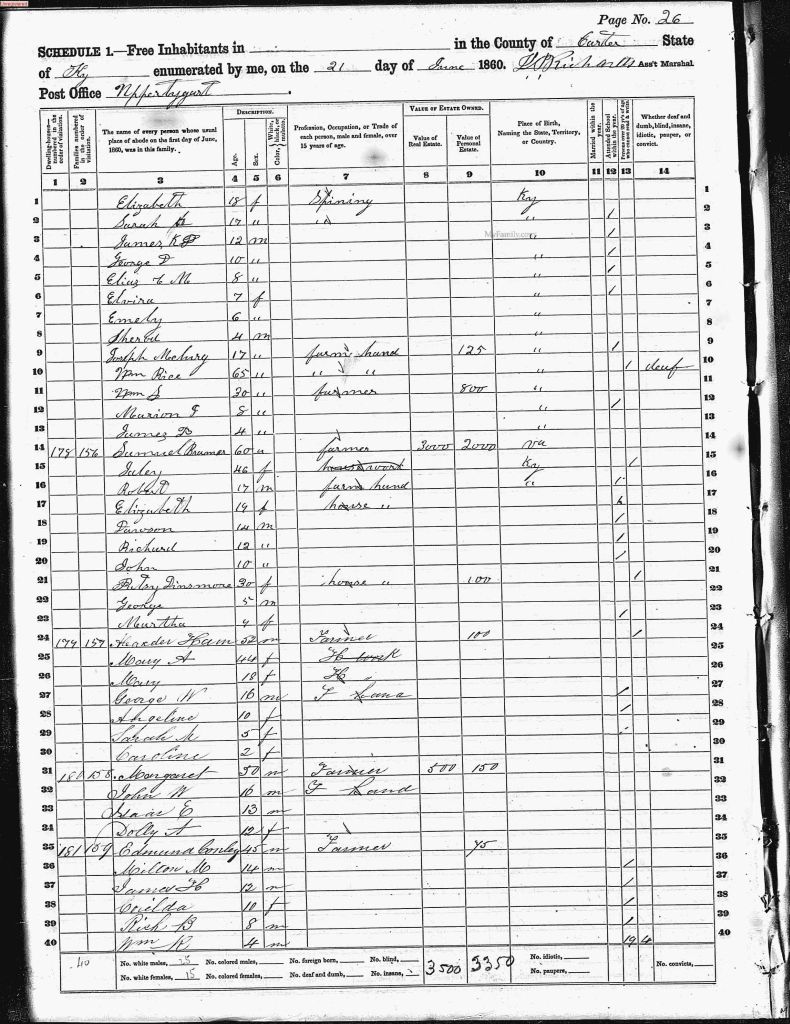 Page No. 26
SCHEDULE 1.—Free Inhabitants in in the County of Carter State
of Ky enumerated by me, on the 21 day of June 1860. Richards Ass't Marshal
Post Office Uppertygart.
DESCRIPTION. VALUE OF ESTATE OWNED.
Dwelling-houses—numbered in the order of visitation. Families numbered in the order of visitation. The name of every person whose usual place of abode on the first day of June, 1860, was in this family. Age. Sex. Color, White, black, or mulatto. Profession, Occupation, or Trade of each person, male and female, over 15 years of age. Value of Real Estate. Value of Personal Estate. Place of Birth, Naming the State, Territory, or Country. Married within the year. Attended School within the year. Persons over 20 y'rs of age who cannot read & write. Whether deaf and dumb, blind, insane, idiotic, pauper, or convict.
1 2 3 4 5 6 7 8 9 10 11 12 13 14
1 Elizabeth 18 f Spining Ky 1
2 Sarah 17 " " " 2
3 James K P 12 m " / 3
MyFamily.com
4 George 10 " " / 4
5 8 " " / 5
6 Elvira 7 f " / 6
7 Emely 6 " " 7
8 4 m " 8
9 Joseph 17 " farm hand 125 " / 9
10 Wm Rice 65 " " " / deaf 10
11 Wm S 30 " farmer 800 " 11
12 Marion F 8 " " / 12
13 James 4 " " 13
14 178 156 Samuel 60 " farmer 3000 2000 va 14
15 Juley 46 f housework Ky / 15
16 Robert 17 m farm hand " / 16
17 Elizabeth 19 f house " 17
18 14 m / 18
19 Richard 12 " / 19
20 John 10 " / 20
21 Betsy Dinsmore 30 f house " 100 / 21
22 George 5 m 22
23 Martha 9 f / 23
24 179 157 Alexander Ham 52 m Farmer 100 / 24
25 Mary A 44 f H work 25
26 Mary 18 f H " 26
27 George W 16 m F hand / 27
28 Angeline 10 f / 28
29 Sarah M 5 f 29
30 Caroline 2 f 30
31 180 158 Margaret 50 m Farmer 500 150 31
32 John W 16 m F hand 32
33 Isaac E 13 m 33
34 Dolly A 12 f 34
35 181 159 Edmund Conley 45 m Farmer 75 35
36 Milton M 14 m / 36
37 James H 12 m / 37
38 10 f / 38
39 Rich B 8 m / 39
40 Wm R 4 m 19 4 40
40 No. white males, No. colored males, No. foreign born, No. blind, 3500 3350 No. idiotic, No. convicts,
No. white females, 15 No. colored females, No. deaf and dumb, No. insane, No. paupers,